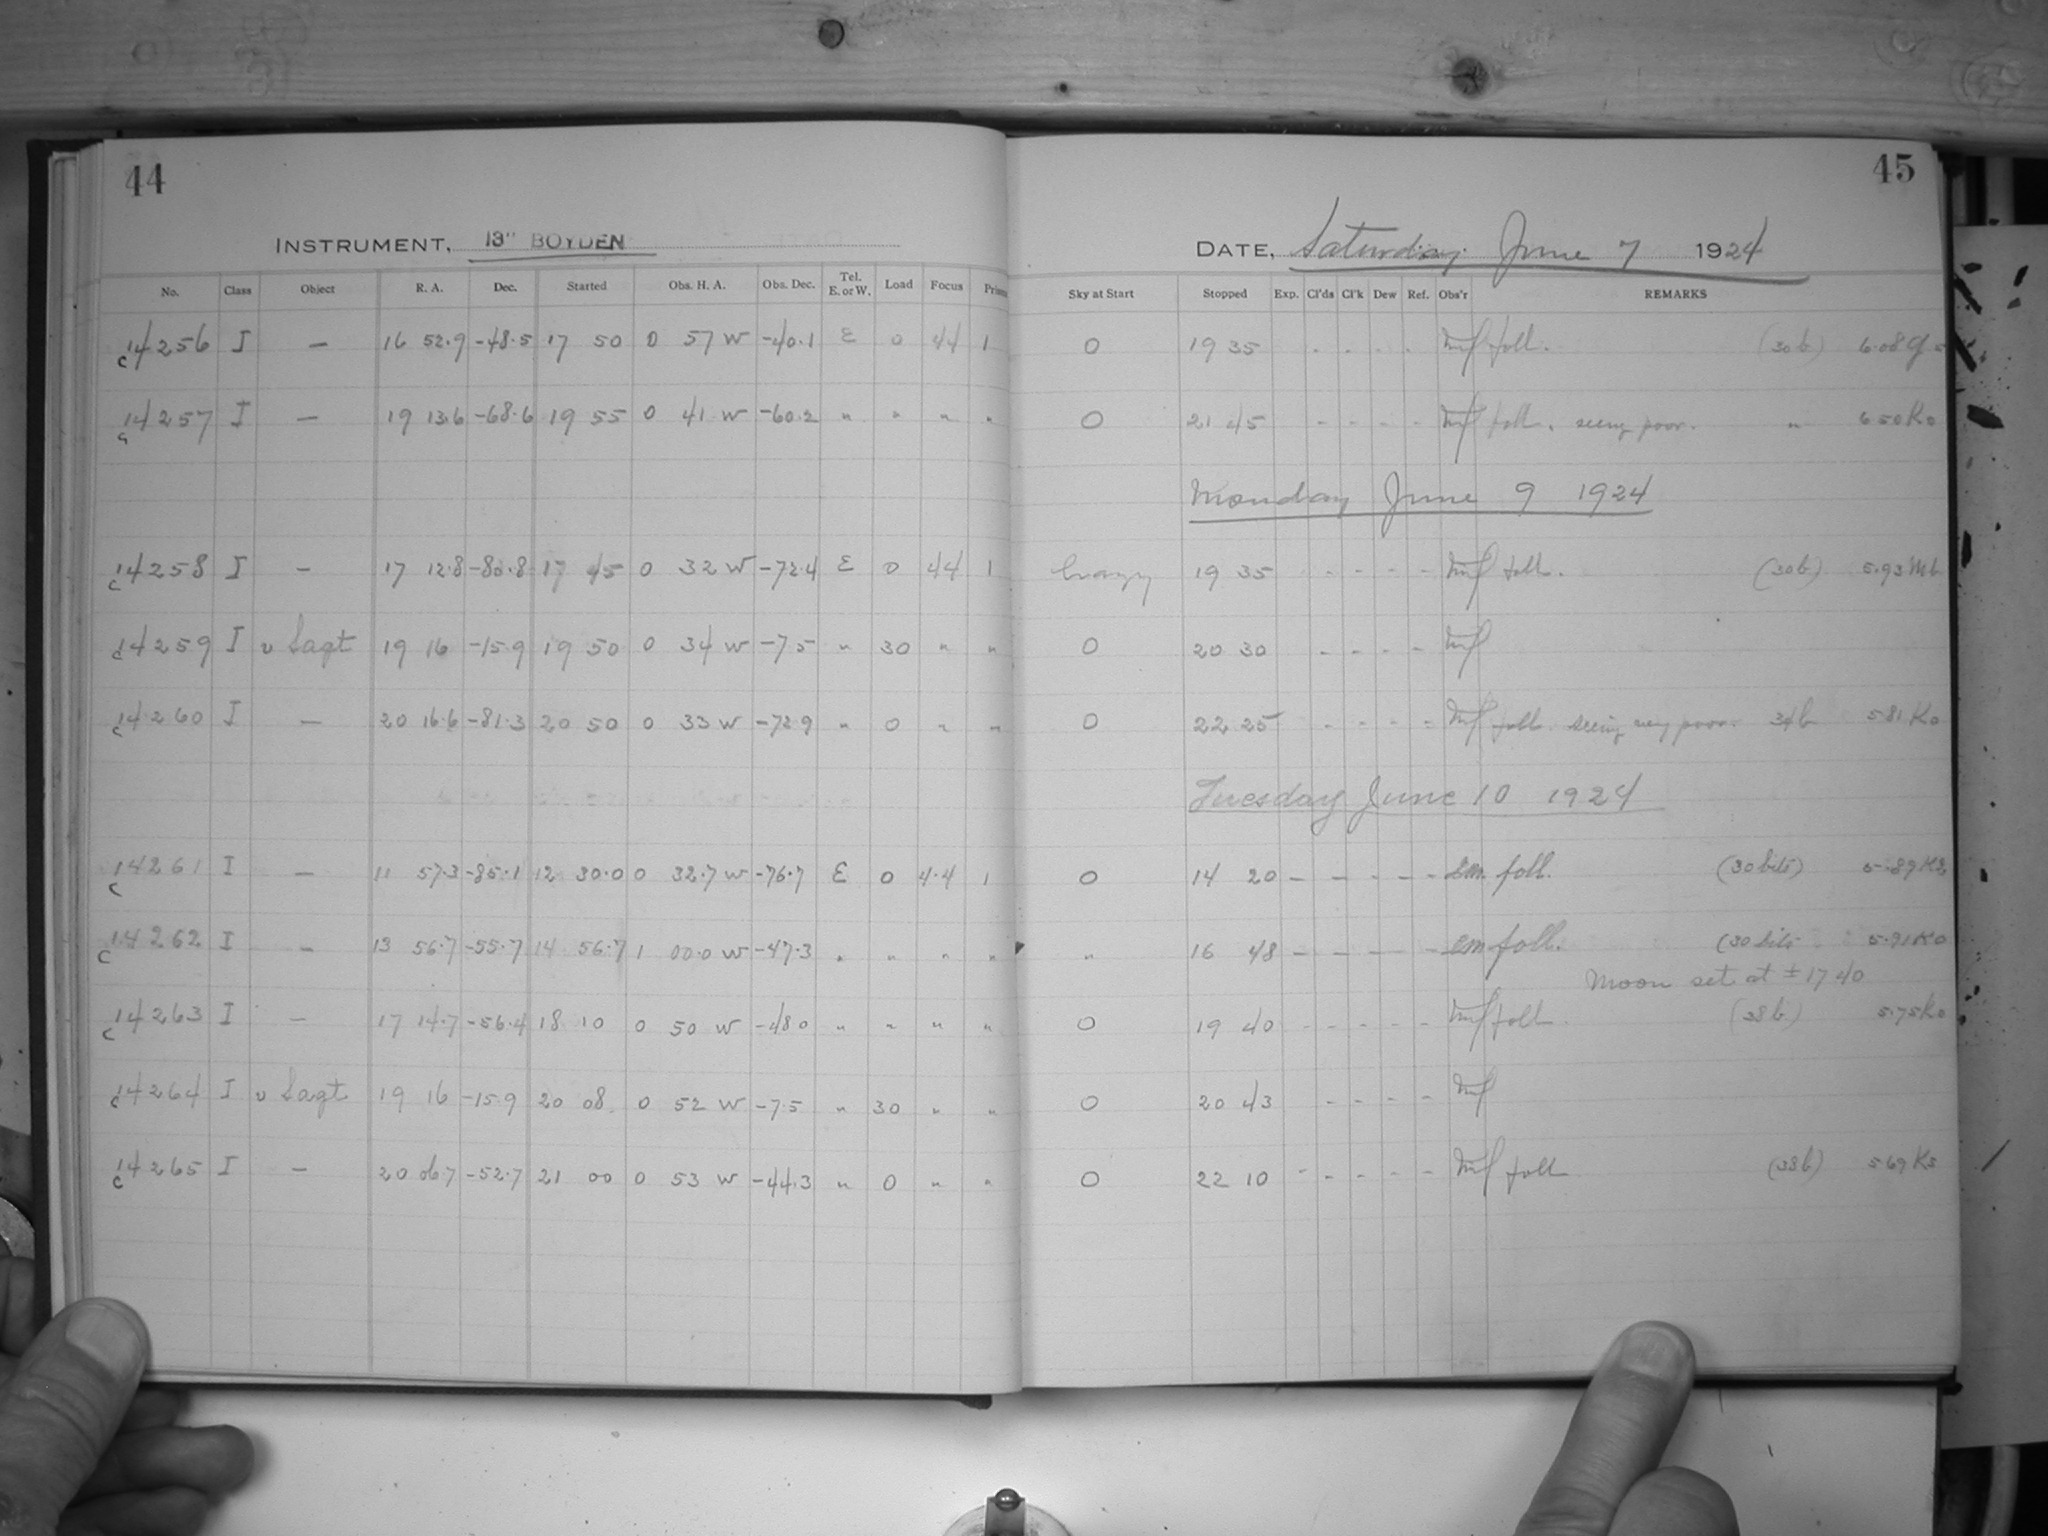 44
INSTRUMENT, 13" BOYDEN
No. Class Object R. A. Dec. Started Obs. H. A. Obs. Dec. Tel. E. or W. Load Focus Prism
c 14256 I — 16 52.9 -48.5 17 50 0 57 W -40.1 E 0 44 1
14257 I — 19 13.6 -68.6 19 55 0 41 W -60.2 " " " "
c 14258 I — 17 12.8 -80.8 17 45 0 32 W -72.4 E 0 44 1
c 14259 I υ Sagt 19 16 -15.9 19 50 0 34 W -7.5 " 30 " "
c 14260 I — 20 16.6 -81.3 20 50 0 33 W -72.9 " 0 " "
c 14261 I — 11 57.3 -85.1 12 30.0 0 32.7 W -76.7 E 0 4.4 1
c 14262 I — 13 56.7 -55.7 14 56.7 1 00.0 W -47.3 " " " "
c 14263 I — 17 14.7 -56.4 18 10 0 50 W -48.0 " " " "
c 14264 I υ Sagt 19 16 -15.9 20 08 0 52 W -7.5 " 30 " "
c 14265 I — 20 06.7 -52.7 21 00 0 53 W -44.3 " 0 " "
45
DATE, Saturday June 7 1924
Sky at Start Stopped Exp. Cl'ds Cl'k Dew Ref. Obs'r REMARKS
0 19 35 - - - - foll. (30 b) 6.08
0 21 45 - - - - foll. seeing poor. " 6.50 K0
Monday June 9 1924
hazy 19 35 - - - - foll. (30 b) 5.93 Mb
0 20 30 - - - -
0 22 25 - - - - foll. seeing very poor. 34 b 5.81 K0
Tuesday June 10 1924
0 14 20 - - - - - em. foll. (30 bits) 5.89 K2
" 16 48 - - - - - em foll. (30 bits 5.91 K0
Moon set at ± 17 40
0 19 40 - - - - - foll. (38 b.) 5.75 K0
0 20 43 - - - -
0 22 10 - - - - - foll (38 b) 5.69 K5